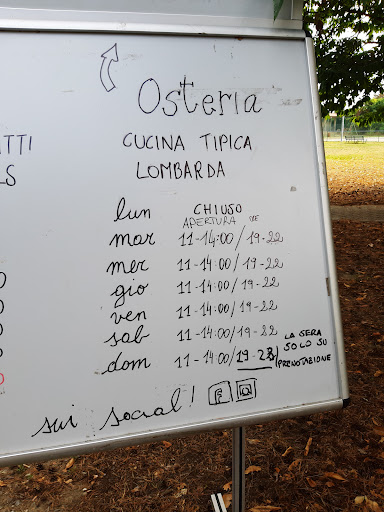 Osteria
CUCINA TIPICA
LOMBARDA
TTI
LS
lun CHIUSO
APERTURA
mar 11-14:00/19-22
mer 11-14:00/19-22
gio 11-14:00/19-22
ven 11-14:00/19-22
sab 11-14:00/19-22
dom 11-14:00/19-22
LA SERA
SOLO SU
PRENOTAZIONE
sui social!